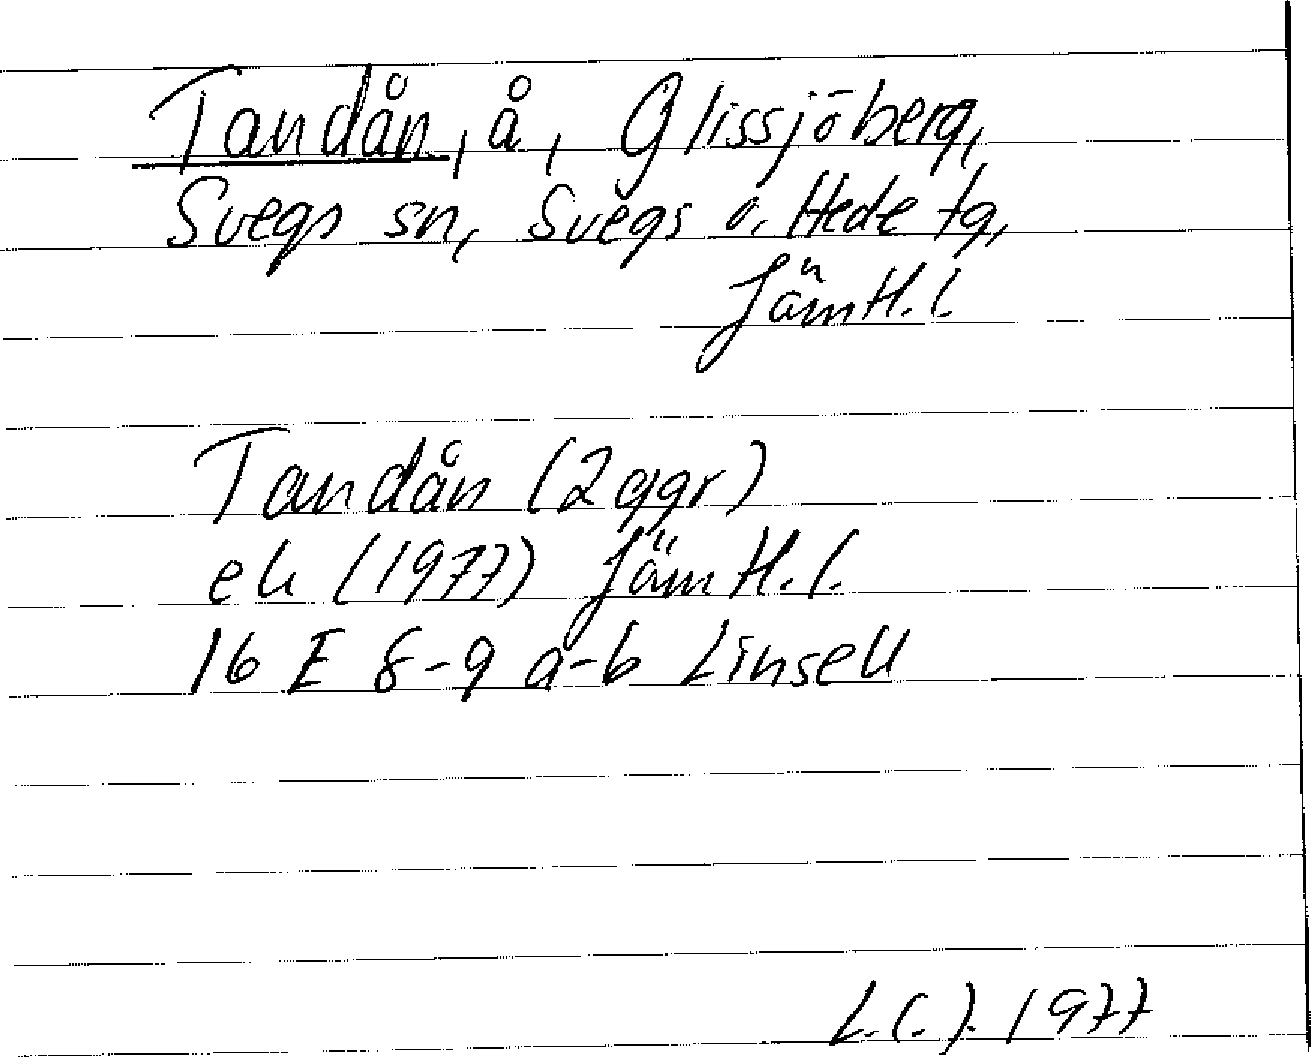 Tandån, å, Glissjöberg,
Svegs sn, Svegs o. Hede tg,
Jämtl. l.
Tandån (2 ggr)
ek (1977) Jämtl. l.
16 E 8-9 a-b Linsell
1977